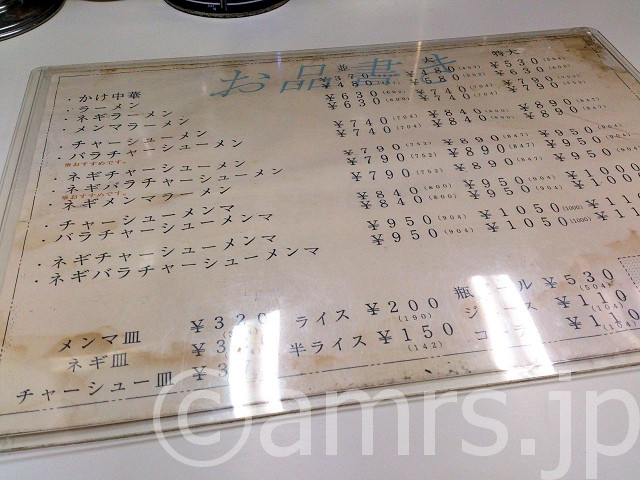 お品書き
並 大 特大
・かけ中華 ¥370 ¥480 ¥530
・ラーメン ¥480 ¥580 ¥630
・ネギラーメン ¥630 ¥740 ¥790
・メンマラーメン ¥630 ¥740 ¥790
・チャーシューメン ¥740 ¥840 ¥890
・バラチャーシューメン ¥740 ¥840 ¥890
※おすすめです。
・ネギチャーシューメン ¥790 (752) ¥890 (847) ¥950
・ネギバラチャーシューメン ¥790 (752) ¥890 (847) ¥950
※おすすめです。
・ネギメンマラーメン ¥790 (752) ¥890 (847) ¥950
・チャーシューメンマ ¥840 (800) ¥950 (904)
・バラチャーシューメンマ ¥840 (800) ¥950 (904)
・ネギチャーシューメンマ ¥950 (904) ¥1050 (1000)
・ネギバラチャーシューメンマ ¥950 (904) ¥1050 (1000)
メンマ皿 ¥320 ライス ¥200 (190) 瓶ビール ¥530 (504)
ネギ皿 半ライス ¥150 (142) ジュース ¥110 (104)
チャーシュー皿 コーラ ¥110
©amrs.jp